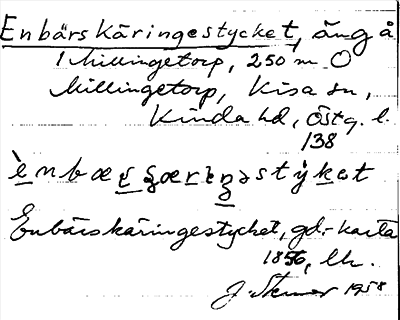 Enbärskäringestycket, äng å
1 Millingetorp, 250 m O
Millingetorp, Kisa sn,
Kinda hd, Östg. l.
138
Enbärskäringestycket, gd.-karta
1856, lk.
1958